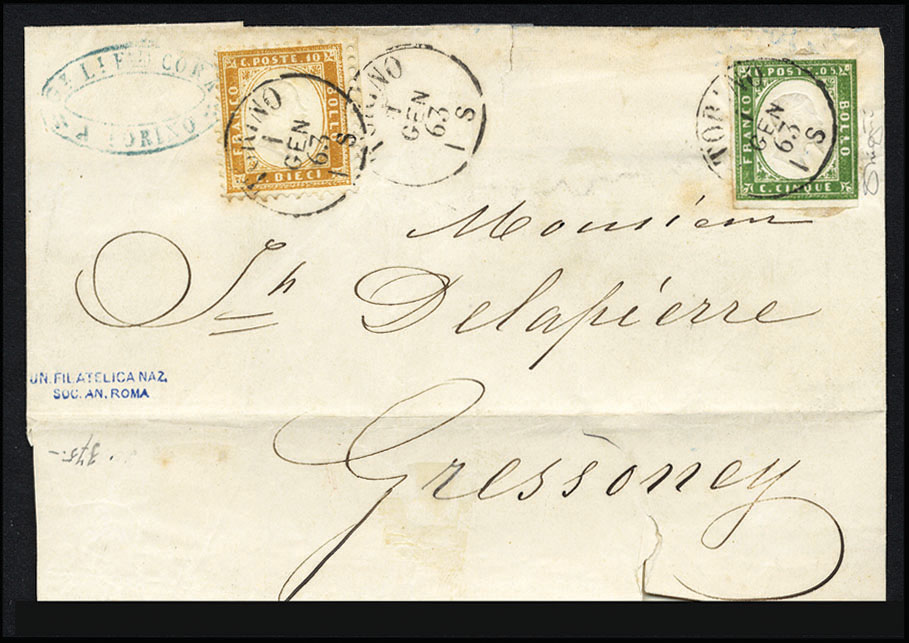 LLI F CORA
TORINO
C. POSTE. 10
FRANCO
BOLLO
C. DIECI
TORINO
1
GEN
63
1 S
TORINO
1
GEN
63
1 S
C. POSTE. 05
FRANCO
BOLLO
C. CINQUE
TOR
GEN
63
1 S
Monsieur
Jh Delapierre
UN. FILATELICA NAZ.
SOC. AN. ROMA
375.-
Gressoney